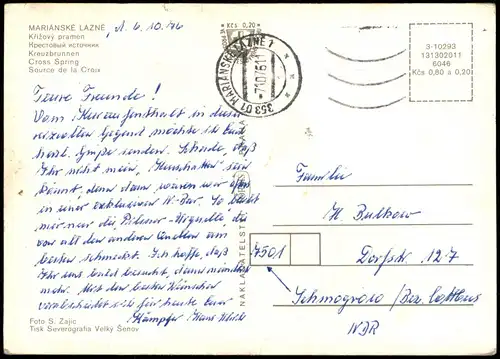 MARIÁNSKÉ LÁZNĚ
Křížový pramen
Крестовый источник
Kreuzbrunnen
Cross Spring
Source de la Croix
d. 6.10.76
Teure Freunde!
Vom Kuraufenthalt in dieser
reizvollen Gegend möchte ich Euch
herzl. Grüße senden. Schade, daß
Ihr nicht mein
könnt, denn dann waren wir öfter
in einer exklusiven
nur die Pilsener
vor all den anderen Quellen am
besten schmeckt. Ich hoffe, daß
Ihr uns bald besucht, dann
mehr. Mit den besten Wünschen
verabschiedet sich für heute Euer
Kämpfer
Foto S. Zajíc
Tisk Severografia Velký Šenov
NAKLADATELSTVÍ
Kčs 0,20
353 01 MARIÁNSKÉ LÁZNĚ 1
-7.10.76 11
3-10293
131302011
6046
Kčs 0,80 a 0,20
Familie
H. Bulkow
7501
Dorfstr. 127
Schmogrow / Bez. Cottbus
NDR